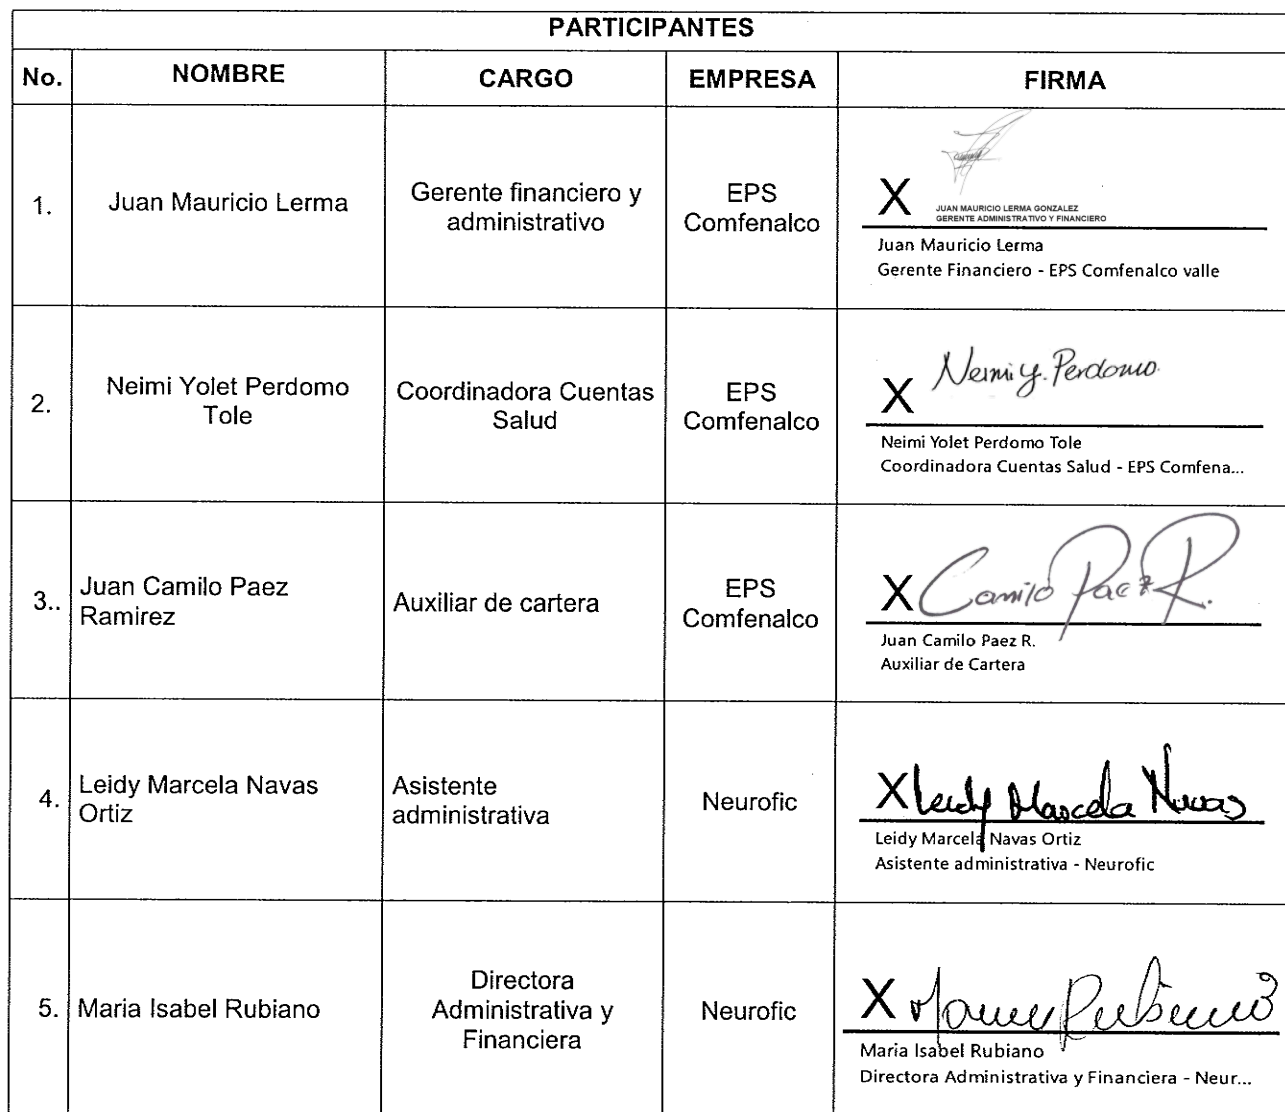 PARTICIPANTES
No. NOMBRE CARGO EMPRESA FIRMA
1. Juan Mauricio Lerma
Gerente financiero y
administrativo
EPS
Comfenalco
X
JUAN MAURICIO LERMA GONZALEZ
GERENTE ADMINISTRATIVO Y FINANCIERO
Juan Mauricio Lerma
Gerente Financiero - EPS Comfenalco valle
2. Neimi Yolet Perdomo
Tole
Coordinadora Cuentas
Salud
EPS
Comfenalco
X Neimi y. Perdomo
Neimi Yolet Perdomo Tole
Coordinadora Cuentas Salud - EPS Comfena...
3.. Juan Camilo Paez
Ramirez
Auxiliar de cartera
EPS
Comfenalco
X Camilo Paez R.
Juan Camilo Paez R.
Auxiliar de Cartera
4. Leidy Marcela Navas
Ortiz
Asistente
administrativa
Neurofic
X Leidy Marcela Navas
Leidy Marcela Navas Ortiz
Asistente administrativa - Neurofic
5. Maria Isabel Rubiano
Directora
Administrativa y
Financiera
Neurofic
X Rubiano
Maria Isabel Rubiano
Directora Administrativa y Financiera - Neur...